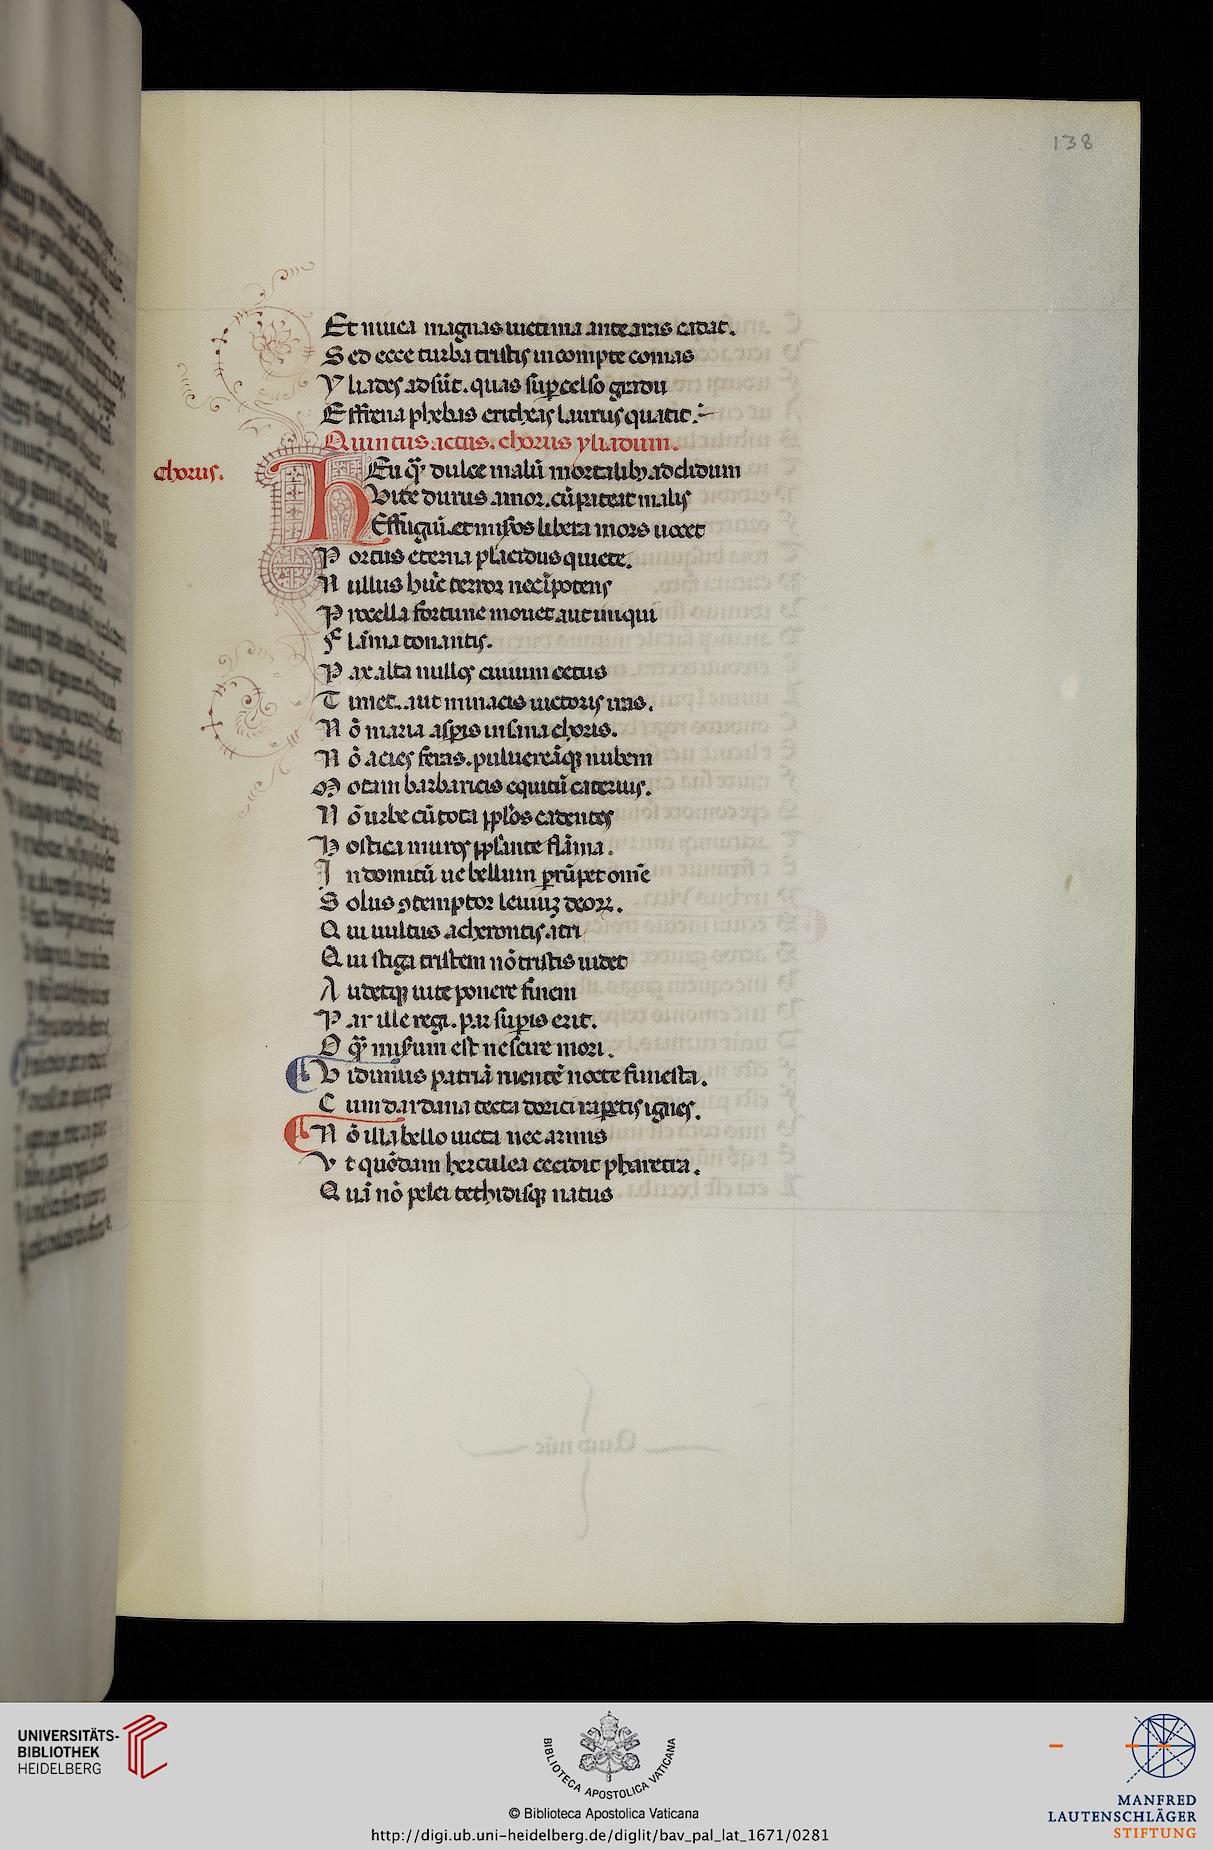 138
Et niuea magnas uictima ante aras cadat.
Sed ecce turba tristis incompte comas
Yliades adsūt. quas sup celso gradu
Effrena phebas entheas laurus quatit.
Quintus actus. chorus yliadum.
chorus.
Heu qᷓ dulce malū mortalibꝫ addidum
Vite durus amor. cū pateat malis
Effugiū. et mis̉os libera mors uocet
Portus eterna placidus quiete.
Nullus hūc terror nec īpotens
Procella fortune mouet aut iniqui
Flāma tonantis.
Pax alta nullos ciuium cetus
Timet. aut minacis uictoris iras.
Nō maria asperis insana choris.
Nō acies feras. puluereāqꝫ nubem
Motam barbaricis equitū cateruis.
Nō urbe cū tota ppl̄os cadentes
Hostica muros ppl̄ante flāma.
Indomitū ue bellum prūpet omē
Solus ꝯtemptor leuiuꝫ deoꝝ.
Qui uultus acherontis atri
Qui stiga tristem nō tristis uidet
Audetqꝫ uite ponere finem
Par ille regi. par supis erit.
O qᷓ mis̉um est nescire mori.
Vidimus patriā ruentē nocte funesta.
Cum dardana tecta dorici rapetis ignes.
Nō illa bello uicta nec armis
Vt quōdam herculea cecidit pharetra.
Quā nō pelei tethidisqꝫ natus
UNIVERSITÄTS-
BIBLIOTHEK
HEIDELBERG
BIBLIOTECA APOSTOLICA VATICANA
© Biblioteca Apostolica Vaticana
http://digi.ub.uni-heidelberg.de/diglit/bav_pal_lat_1671/0281
MANFRED
LAUTENSCHLÄGER
STIFTUNG